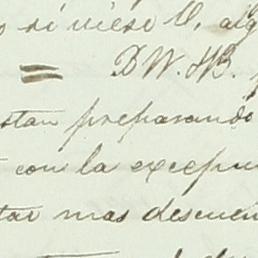 si viese V. alg
= D W. HB.
stan preparando
con la excepci
tar mas descuen